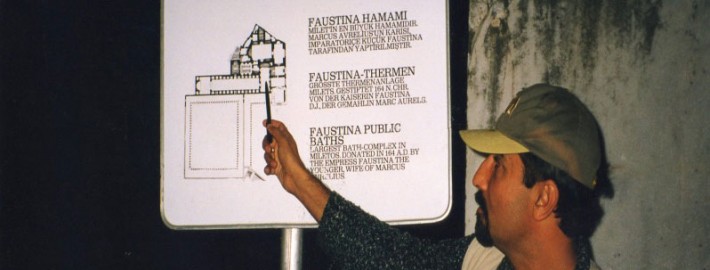 FAUSTINA HAMAMI
MİLET'İN EN BÜYÜK HAMAMIDIR.
MARCUS AVRELIUS'UN KARISI,
İMPARATORİÇE KÜÇÜK FAUSTINA
TARAFINDAN YAPTIRILMIŞTIR.
FAUSTINA-THERMEN
GRÖSSTE THERMENANLAGE
MILETS, GESTIFTET 164 N. CHR.
VON DER KAISERIN FAUSTINA
D.J., DER GEMAHLIN MARC AURELS.
FAUSTINA PUBLIC
BATHS
LARGEST BATH-COMPLEX IN
MILETOS, DONATED IN 164 A.D. BY
THE EMPRESS FAUSTINA THE
YOUNGER, WIFE OF MARCUS